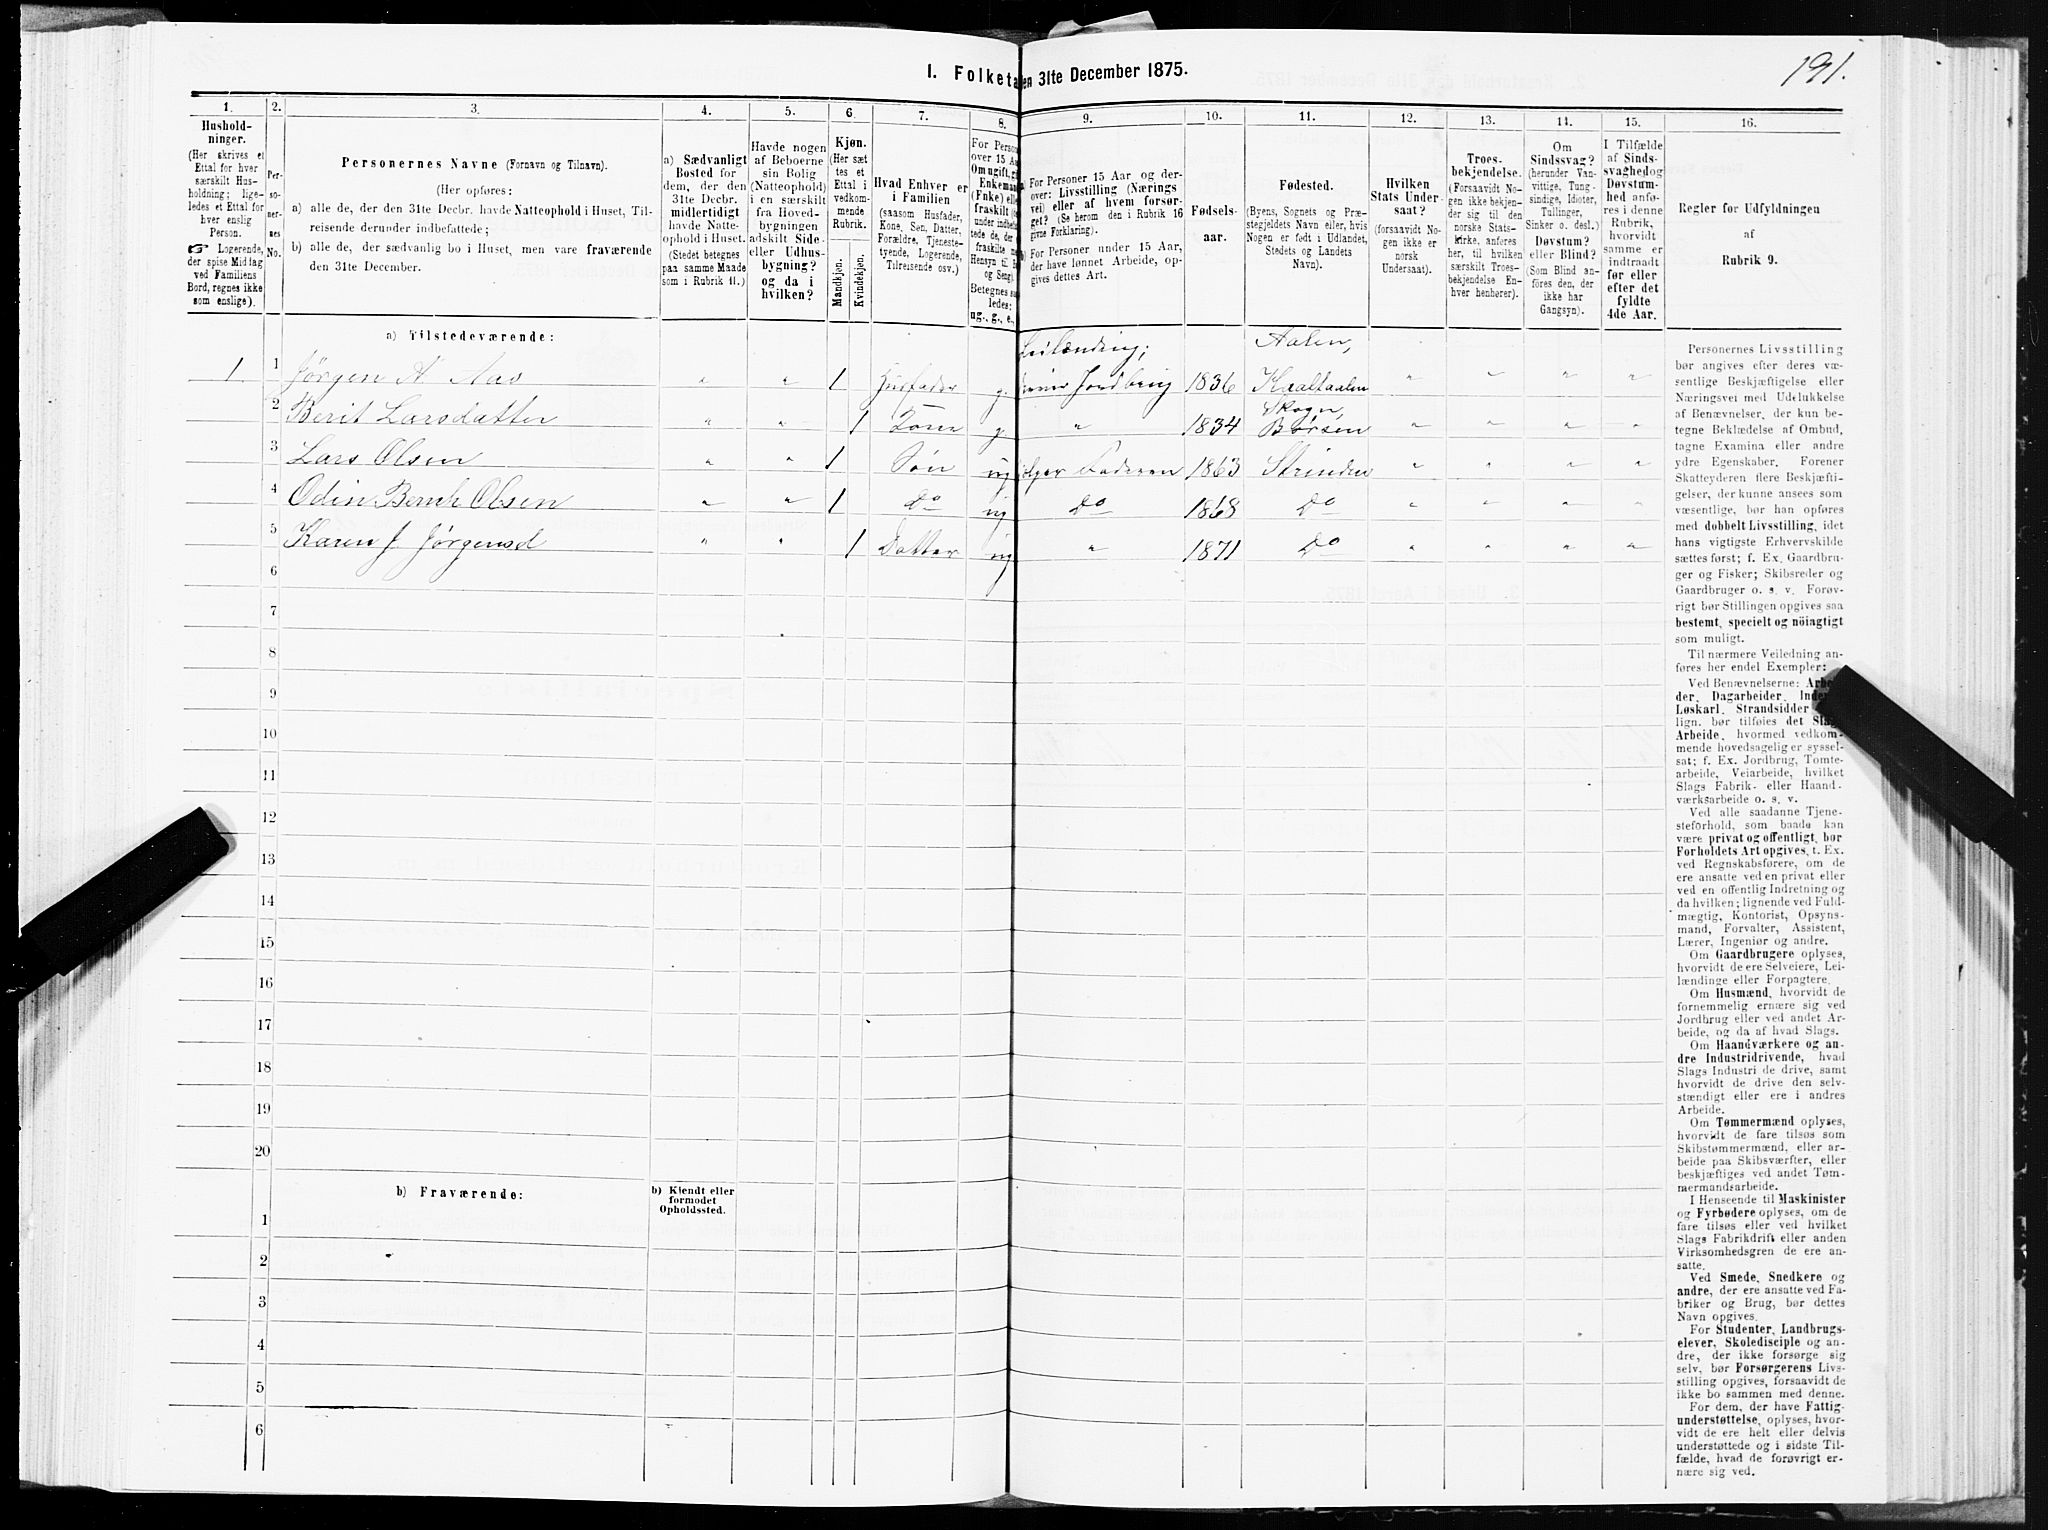 191.
I. Folketa en 31te December 1875.
1. 2. 3. 4. 5. 6. 7. 8. 9. 10. 11. 12. 13. 14. 15. 16.
Hushold-
ninger.
(Her skrives et
Ettal for hver
særskilt Hus-
holdning; lige-
ledes et Ettal for
hver enslig
Person.
☞ Logerende,
der spise Middag
ved Familiens
Bord, regnes ikke
som enslige).
Per-
so-
ner-
nes
No.
Personernes Navne (Fornavn og Tilnavn).
(Her opføres:
a) alle de, der den 31te Decbr. havde Natteophold i Huset, Til-
reisende derunder indbefattede;
b) alle de, der sædvanlig bo i Huset, men vare fraværende
den 31te December.
a) Sædvanligt
Bosted for
dem, der den
31te Decbr.
midlertidigt
havde Natte-
ophold i Huset.
(Stedet betegnes
paa samme Maade
som i Rubrik 11.)
Havde nogen
af Beboerne
sin Bolig
(Natteophold)
i en særskilt
fra Hoved-
bygningen
adskilt Side-
eller Udhus-
bygning?
og da i
hvilken?
Kjøn.
(Her sæt
tes et
Ettal i
vedkom-
mende
Rubrik.
Mandkjøn.
Kvindekjøn.
Hvad Enhver er
i Familien
(saasom Husfader,
Kone, Søn, Datter,
Forældre, Tjeneste-
tyende, Logerende,
Tilreisende osv.)
For Person
over 15 Aa
Om ugift, gi
Enkeman
(Fnke) elle
fraskilt (s
under indbe
tede de, der
fraskilte m
Hensyn til B
og Seng).
Betegnes sa
ledes:
ug., g., e.,
For Personer 15 Aar og der-
over: Livsstilling (Nærings
vei) eller af hvem forsør-
get? (Se herom den i Rubrik 16
givne Forklaring).
For Personer under 15 Aar,
der have lønnet Arbeide, op-
gives dettes Art.
Fødsels-
aar.
Fødested.
(Byens, Sognets og Præ-
stegjeldets Navn eller, hvis
Nogen er født i Udlandet,
Stedets og Landets
Navn).
Hvilken
Stats Under-
saat?
(forsaavidt No-
gen ikke er
norsk
Undersaat).
Troes-
bekjendelse.
(Forsaavidt No-
gen ikke bekjen-
der sig til den
norske Stats-
kirke, anføres
her, til hvilken
særskilt Troes-
bekjendelse En-
hver henhører).
Om
Sindssvag?
(herunder Van-
vittige, Tung-
sindige, Idioter,
Tullinger,
Sinker o. desl.)
Døvstum?
eller Blind?
(Som Blind an-
føres den, der
ikke har
Gangsyn).
I Tilfælde
af Sinds-
svaghedog
Døvstum-
hed anfø-
res i denne
Rubrik,
hvorvidt
samme er
indtraadt
før eller
efter det
fyldte
4de Aar.
Regler for Udfyldningen
af
Rubrik 9.
a) Tilstedeværende:
Aalen,
1 1 Jørgen A Aas " " 1 Husfader g. Jordbrug 1836 Kaaltaalen " " " "
Skogn,
2 Berit Larsdatter " " 1 Kone g " 1834 Børsen " " " "
3 Lars Olsen " " 1 Søn ug Faderen 1863 Strinden " " " "
4 Odin Bernh Olsen " " 1 Do ug Do 1868 Do " " " "
5 Karen J. Jørgensd " " 1 Datter ug " 1871 Do " " " "
6
7
8
9
10
11
12
13
14
15
16
17
18
19
20
b) Fraværende:
b) Kjendt eller
formodet
Opholdssted.
1
2
3
4
5
6
Personernes Livsstilling
bør angives efter deres væ-
sentlige Beskjæftigelse eller
Næringsvei med Udelukkelse
af Benævnelser, der kun be-
tegne Beklædelse af Ombud,
tagne Examina eller andre
ydre Egenskaber. Forener
Skatteyderen flere Beskjæfti-
gelser, der kunne ansees som
væsentlige, bør han opføres
med dobbelt Livsstilling, idet
hans vigtigste Erhvervskilde
sættes først; f. Ex. Gaardbru-
ger og Fisker; Skibsreder og
Gaardbruger o. s. v. Forøv-
rigt bør Stillingen opgives saa
bestemt, specielt og nöiagtigt
som muligt.
Til nærmere Veiledning an-
føres her endel Exempler:
Ved Benævnelserne: Arbei
der, Dagarbeider, Inder
Løskarl, Strandsidder
lign. bør tilføies det Slag
Arbeide, hvormed vedkom-
mende hovedsagelig er syssel-
sat; f. Ex. Jordbrug, Tomte-
arbeide, Veiarbeide, hvilket
Slags Fabrik- eller Haand-
værksarbeide o. s. v.
Ved alle saadanne Tjene-
steforhold, som baade kan
være privat og offentligt, bør
Forholdets Art opgives, t. Ex.
ved Regnskabsførere, om de
ere ansatte ved en privat eller
ved en offentlig Indretning og
da hvilken; lignende ved Fuld-
mægtig, Kontorist, Opsyns-
mand, Forvalter, Assistent,
Lærer, Ingeniør og andre.
Om Gaardbrugere oplyses,
hvorvidt de ere Selveiere, Lei-
lændinge eller Forpagtere.
Om Husmænd, hvorvidt de
fornemmelig ernære sig ved
Jordbrug eller ved andet Ar-
beide, og da af hvad Slags.
Om Haandværkere og an-
dre Industridrivende, hvad
Slags Industri de drive, samt
hvorvidt de drive den selv-
stændigt eller ere i andres
Arbeide.
Om Tømmermænd oplyses,
hvorvidt de fare tilsøs som
Skibstømmermænd, eller ar-
beide paa Skibsværfter, eller
beskjæftiges ved andet Tøm-
mermandsarbeide.
I Henseende til Maskinister
og Fyrbødere oplyses, om de
fare tilsøs eller ved hvilket
Slags Fabrikdrift eller anden
Virksomhedsgren de ere an-
satte.
Ved Smede, Snedkere og
andre, der ere ansatte ved Fa-
briker og Brug, bør dettes
Navn opgives.
For Studenter, Landbrugs-
elever, Skoledisciple og an-
dre, der ikke forsørge sig
selv, bør Forsørgerens Livs-
stilling opgives, forsaavidt de
ikke bo sammen med denne.
For dem, der have Fattig-
understøttelse, oplyses, hvor-
vidt de ere helt eller delvis
understøttede og i sidste Til-
fælde, hvad de forøvrigt er-
nære sig ved.